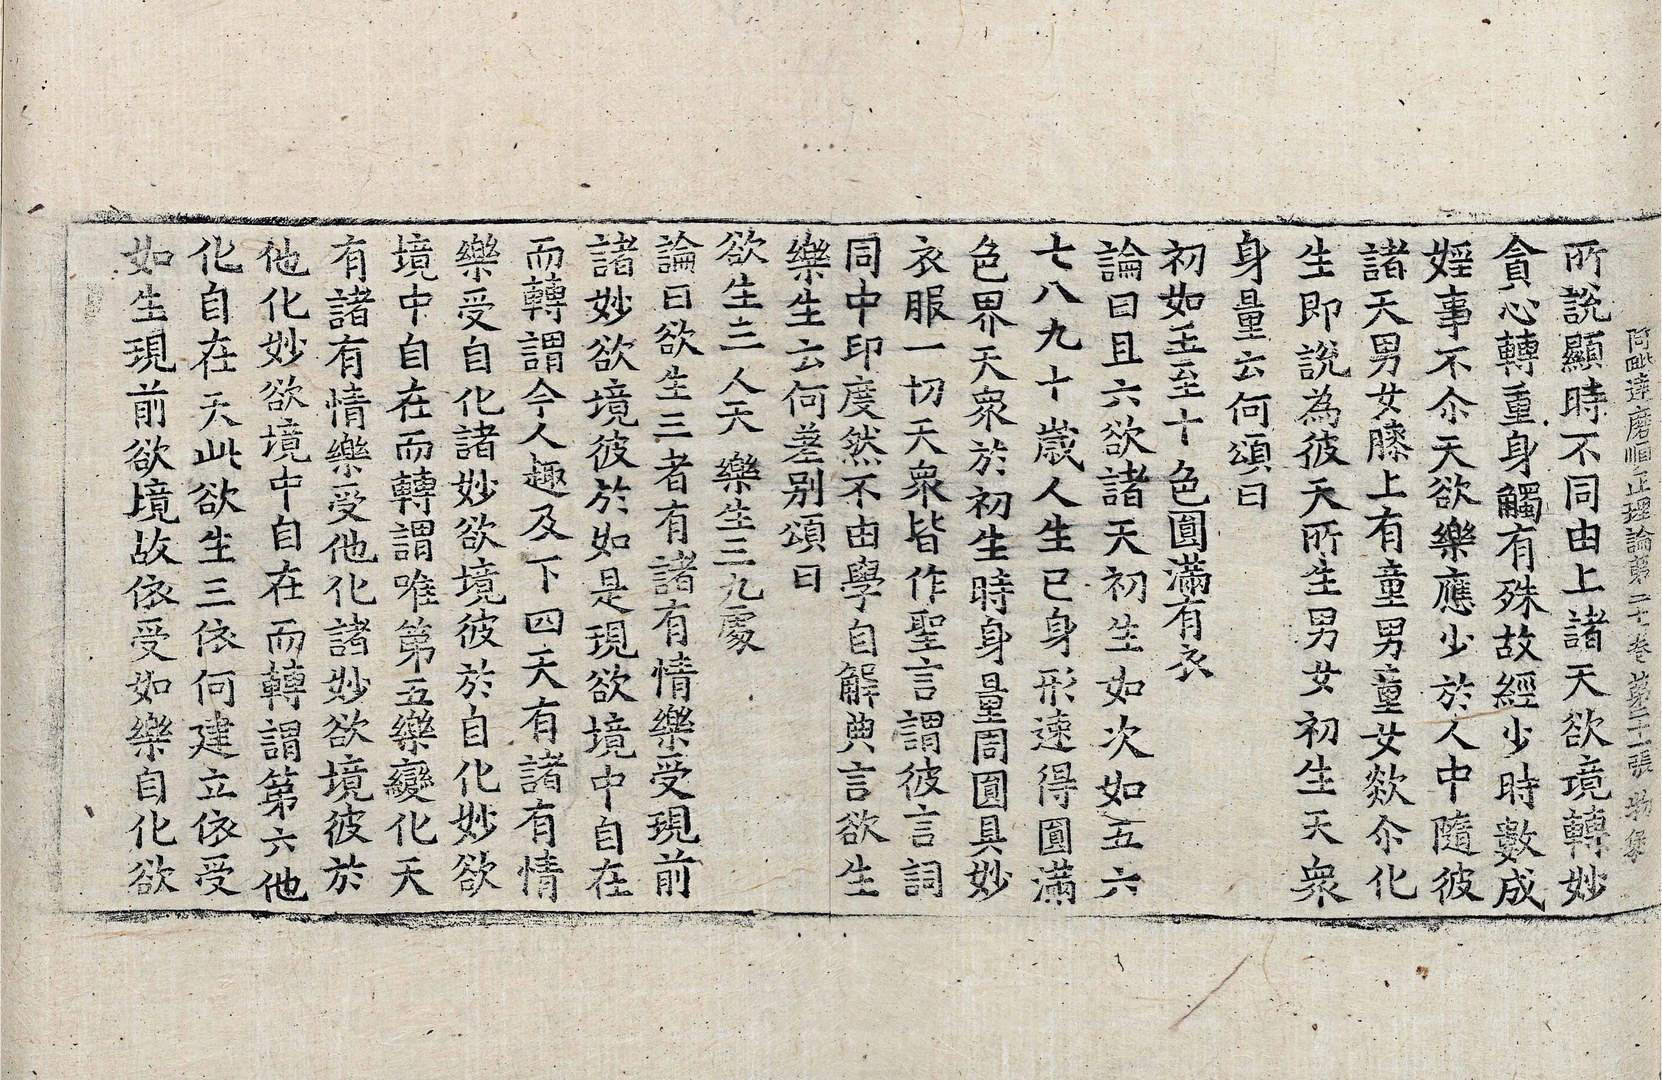 阿毗達磨順正理論第三十一卷 第二十一張 物集
所說顯時不同由上諸天欲境轉妙
貪心轉重身觸有殊故經少時數成
婬事不尒天欲樂應少於人中隨彼
諸天男女膝上有童男童女欻尒化
生即說為彼天所生男女初生天衆
身量云何頌曰
初如五至十色圓滿有衣
論曰且六欲諸天初生如次如五六
七八九十歲人生已身形速得圓滿
色界天衆於初生時身量周圓具妙
衣服一切天衆皆作聖言謂彼言詞
同中印度然不由學自解典言欲生
樂生云何差别頌曰
欲生三人天 樂生三九處
論曰欲生三者有諸有情樂受現前
諸妙欲境彼於如是現欲境中自在
而轉謂今人趣及下四天有諸有情
樂受自化諸妙欲境彼於自化妙欲
境中自在而轉謂唯第五樂變化天
有諸有情樂受他化諸妙欲境彼於
他化妙欲境中自在而轉謂第六他
化自在天此欲生三依何建立依受
如生現前欲境故依受如樂自化欲